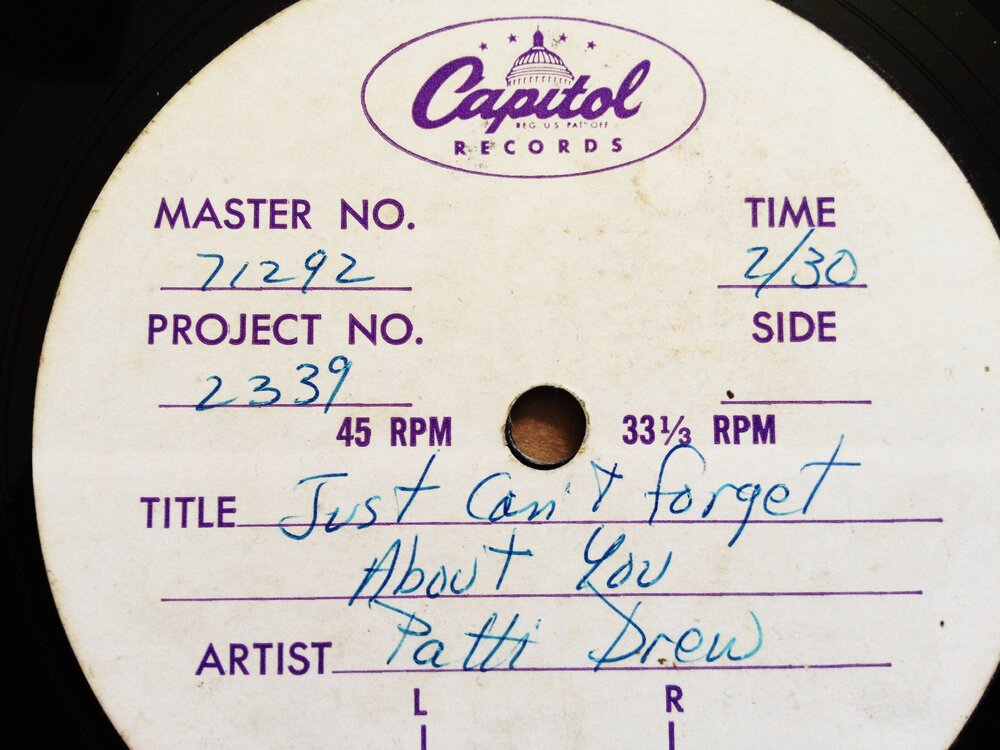 Capitol
REG. U.S. PAT. OFF.
RECORDS
MASTER NO. TIME
71292 2/30
PROJECT NO. SIDE
2339
45 RPM 33⅓ RPM
TITLE Just Can't forget
About You
ARTIST Patti Drew
L R